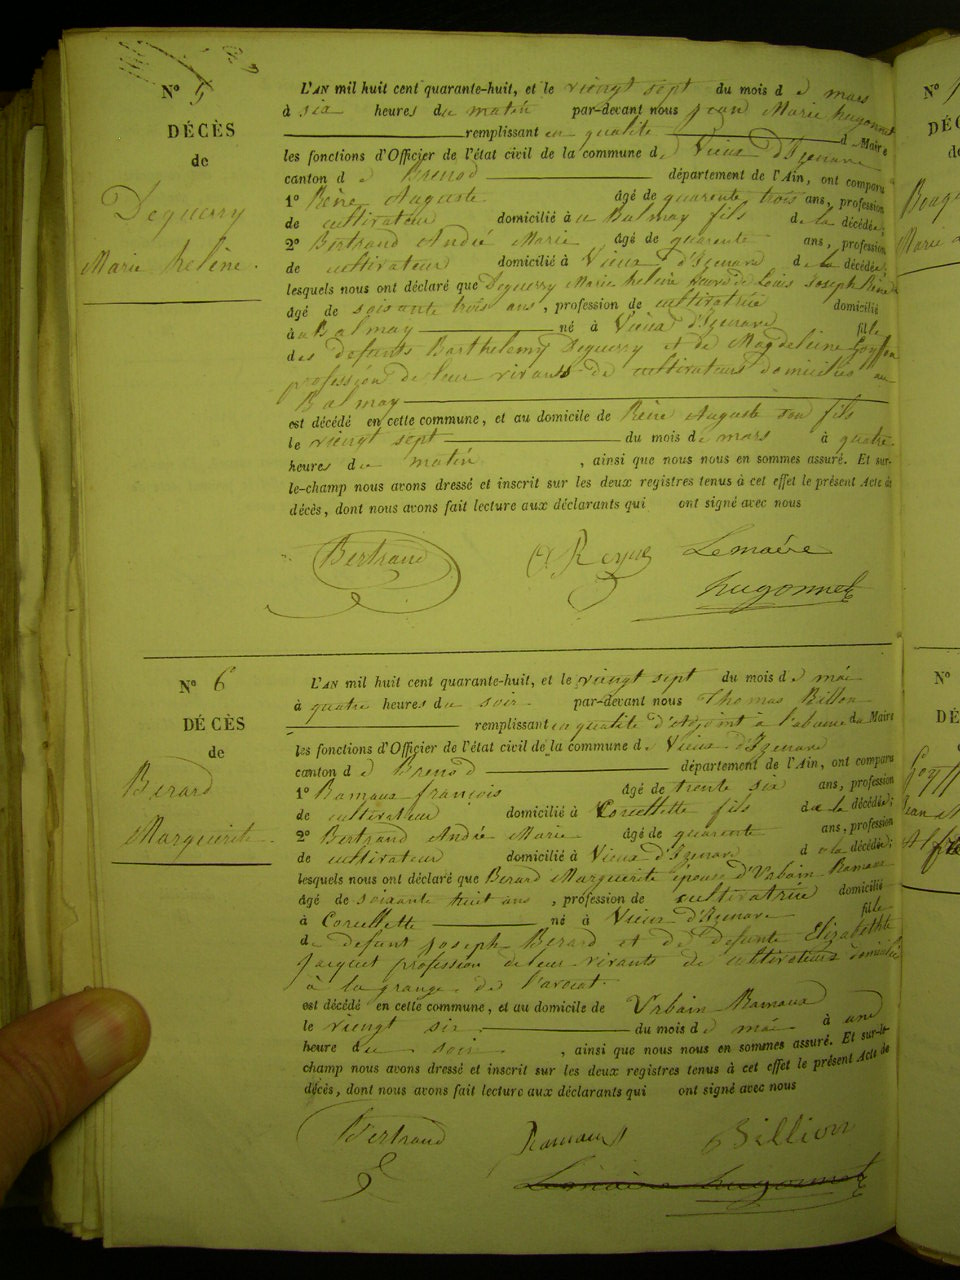 Nº 5
DÉCÈS
de
Deguerry
Marie hélène.
L'AN mil huit cent quarante-huit, et le vieingt sept du mois d e mars
à six heures du matin par-devant nous jean Marie hugonnet
remplissant en qualité de Maire
les fonctions d'Officier de l'état civil de la commune d. Vieux D'Izenave
canton d e Brenod département de l'Ain, ont comparu
1º Rène Auguste âgé de quarente trois ans, profession
de cultivateur domicilié à u Balmay fils de la décédée;
2º Bertrand André Marie âgé de quarente ans, profession
de cultivateur domicilié à Vieux d'Izenave de la décédée,
lesquels nous ont déclaré que Deguerry Marie hélène veuve de Louis joseph Rène
âgé de soixante trois ans, profession de cultivatrice domicilié
à u Balmay né à Vieux d'Izenave fille
des defunts Barthelemy Deguerry et de Magdeleine Goyffon
profession de leur vivants de cultivateurs domicilies au
Balmay
est décédé en cette commune, et au domicile de Rène Auguste son fils
le vieingt sept du mois de mars à quatre
heures du matin, ainsi que nous nous en sommes assuré. Et sur-
le-champ nous avons dressé et inscrit sur les deux registres tenus à cet effet le présent Acte de
décès, dont nous avons fait lecture aux déclarants qui ont signé avec nous
Bertrand Lemaire
hugonnet
Nº 6
DÉCÈS
de
Berard
Marguerite.
L'AN mil huit cent quarante-huit, et le vieingt sept du mois d e mai
à quatre heures du soir par-devant nous Thomas Billion
remplissant en qualité d'adjoint à l'absence du Maire
les fonctions d'Officier de l'état civil de la commune d. Vieux d'Izenave
canton d e Brenod département de l'Ain, ont comparu
1º Ramaux françois âgé de trente six ans, profession
de cultivateur domicilié à Corcellette fils de la décédée;
2º Bertrand André Marie âgé de quarente ans, profession
de cultivateur domicilié à Vieux d'Izenave de la décédée;
lesquels nous ont déclaré que Berard Marguerite épouse d'Urbain Ramaux
âgé de soixante huit ans, profession de cultivatrice domicilié
à Corcellette né à Vieux d'Izenave fille
de defunt joseph Berard et de defunte Elizabethte
jacquet profession de leur vivants de cultivateurs domiciliés
à la grange de l'avocat.
est décédé en cette commune, et au domicile de Urbain Ramaux
le vieingt six du mois de mai à une
heure du soir, ainsi que nous nous en sommes assuré. Et sur-le-
champ nous avons dressé et inscrit sur les deux registres tenus à cet effet le présent Acte de
décès, dont nous avons fait lecture aux déclarants qui ont signé avec nous
Bertrand Ramaux Billion
Lemaire hugonnet